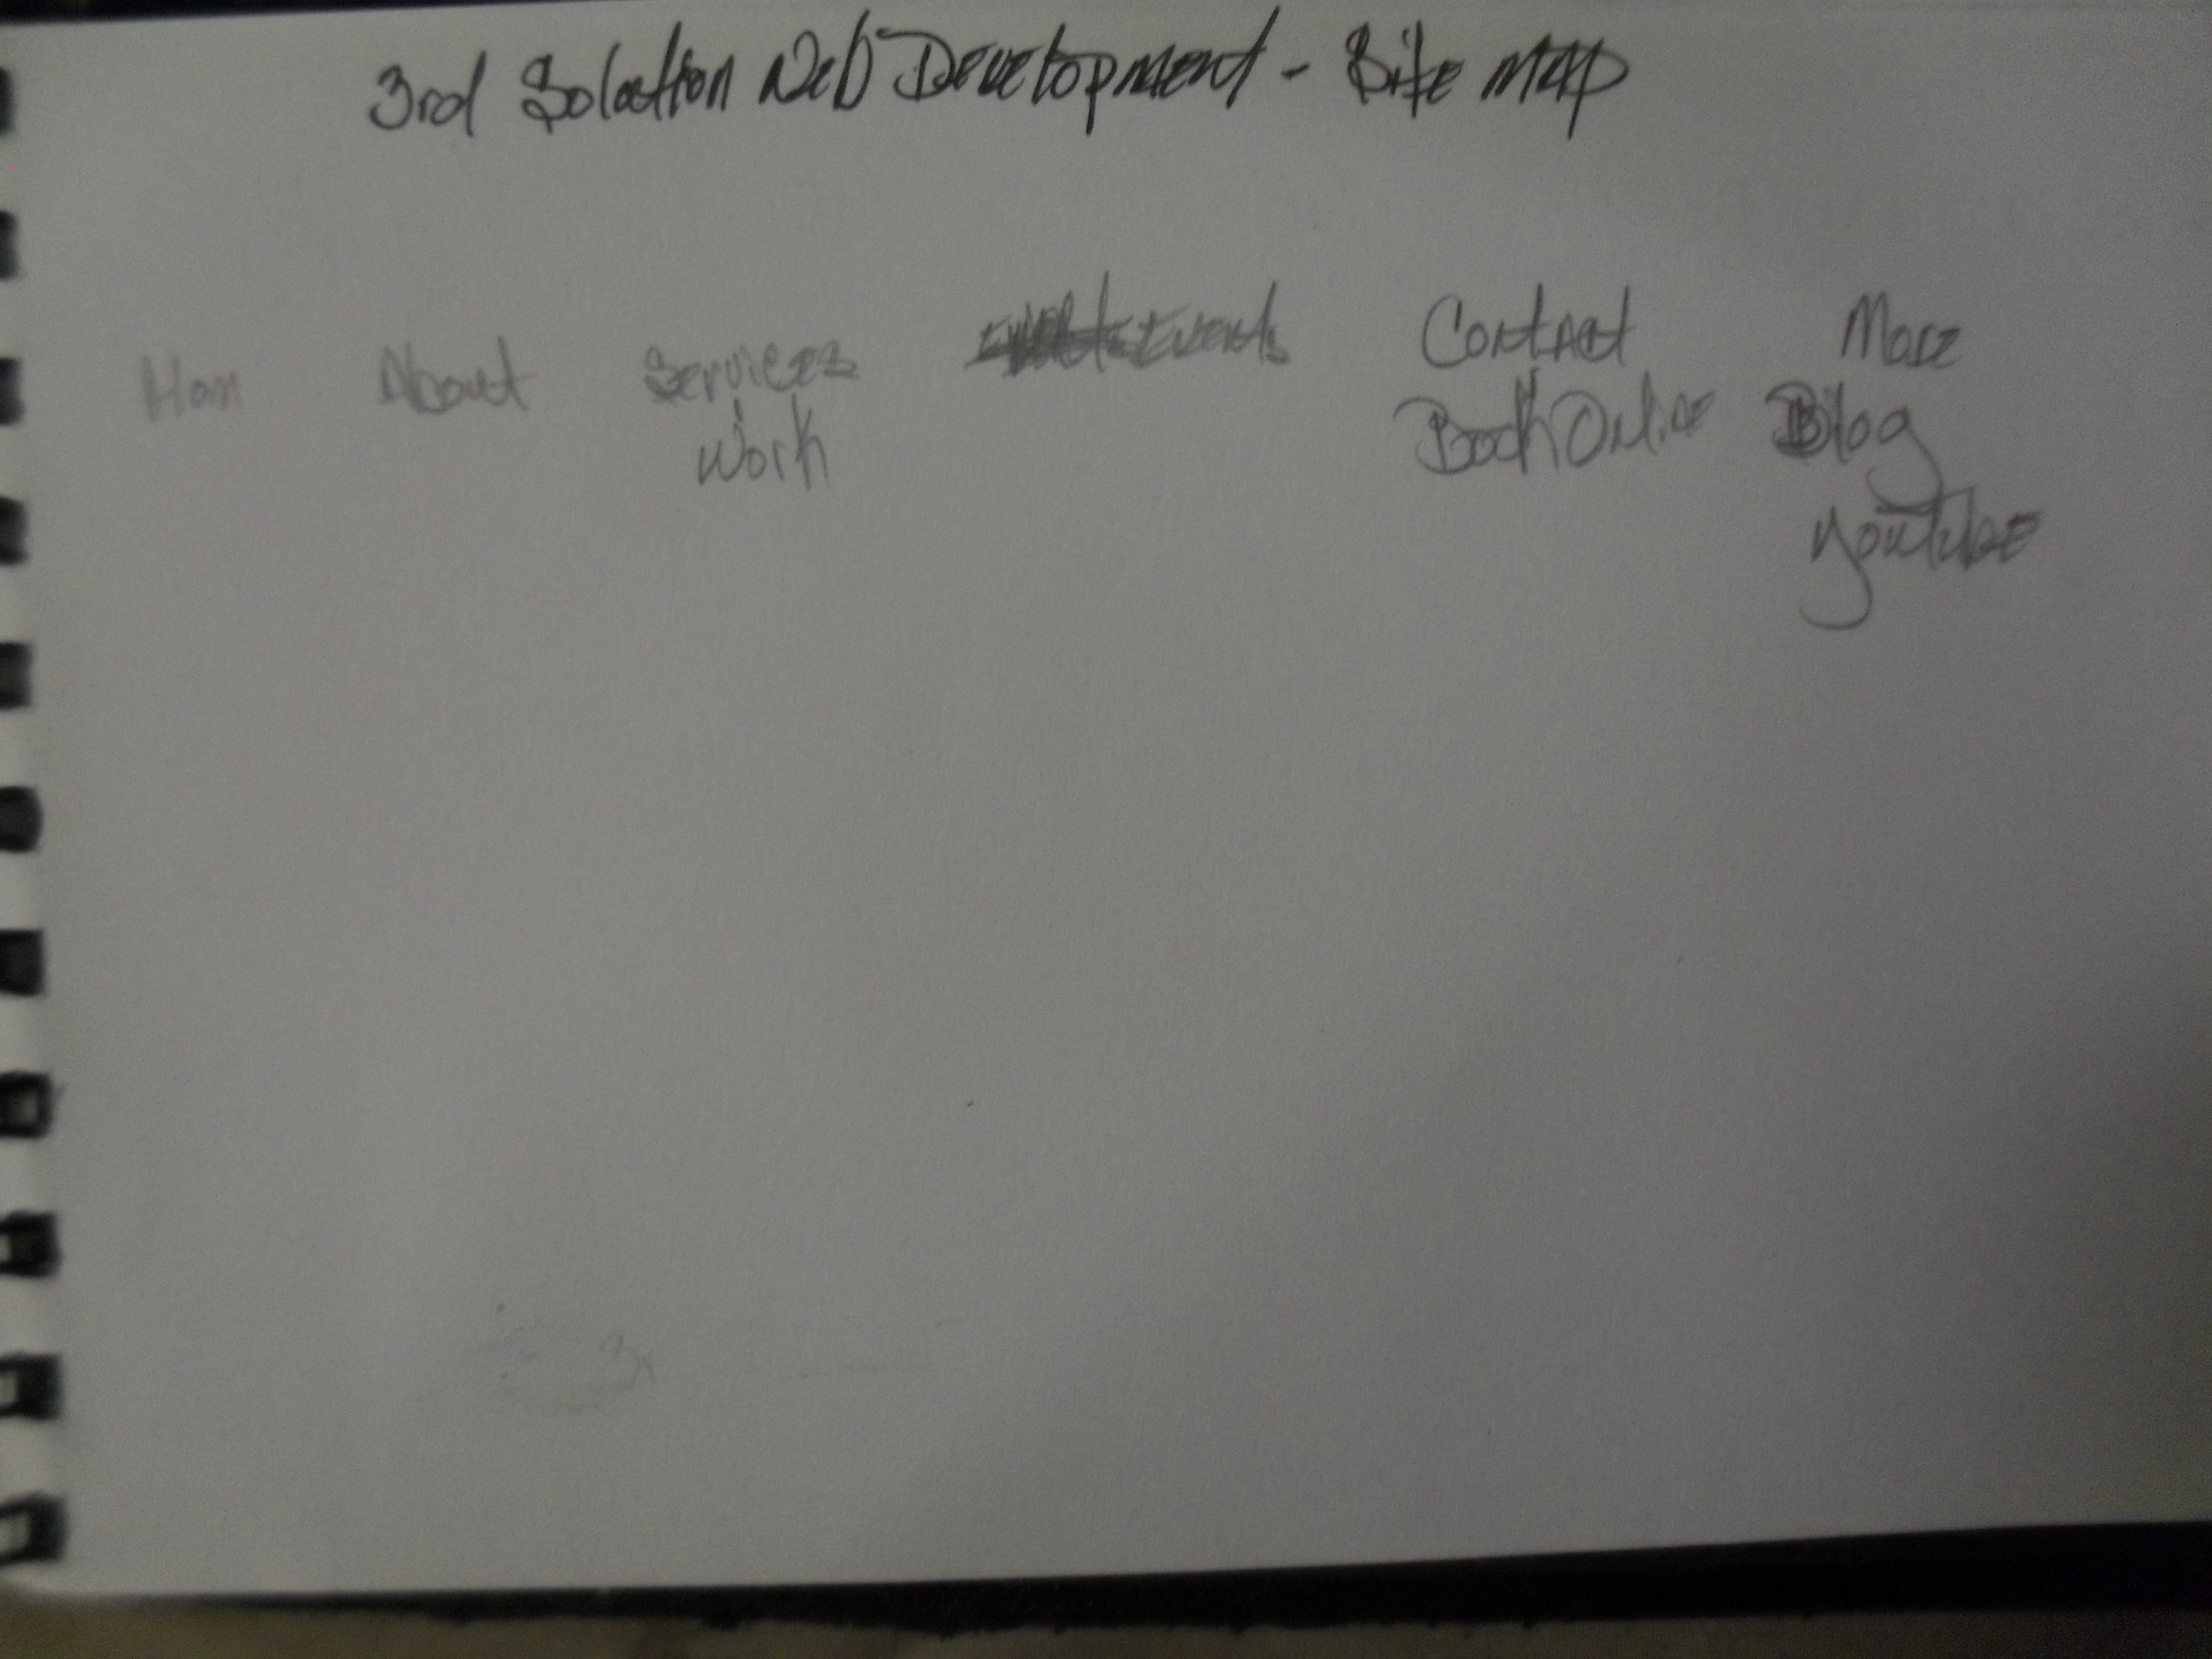 3rd Solution Web Development - Site Map
Hom About Services Events Contact More
Work Book Online Blog
Youtube